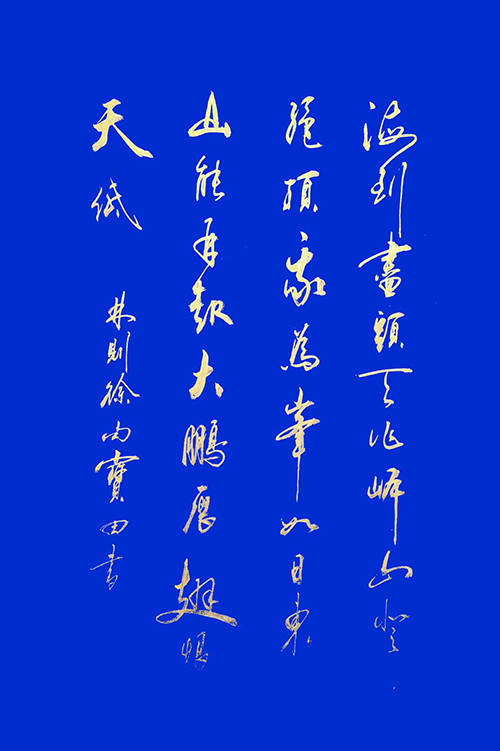 海到盡頭天作岸山登
絕頂我為峯如日東
山能再起大鵬展翅恨
天低
林則徐寶田書